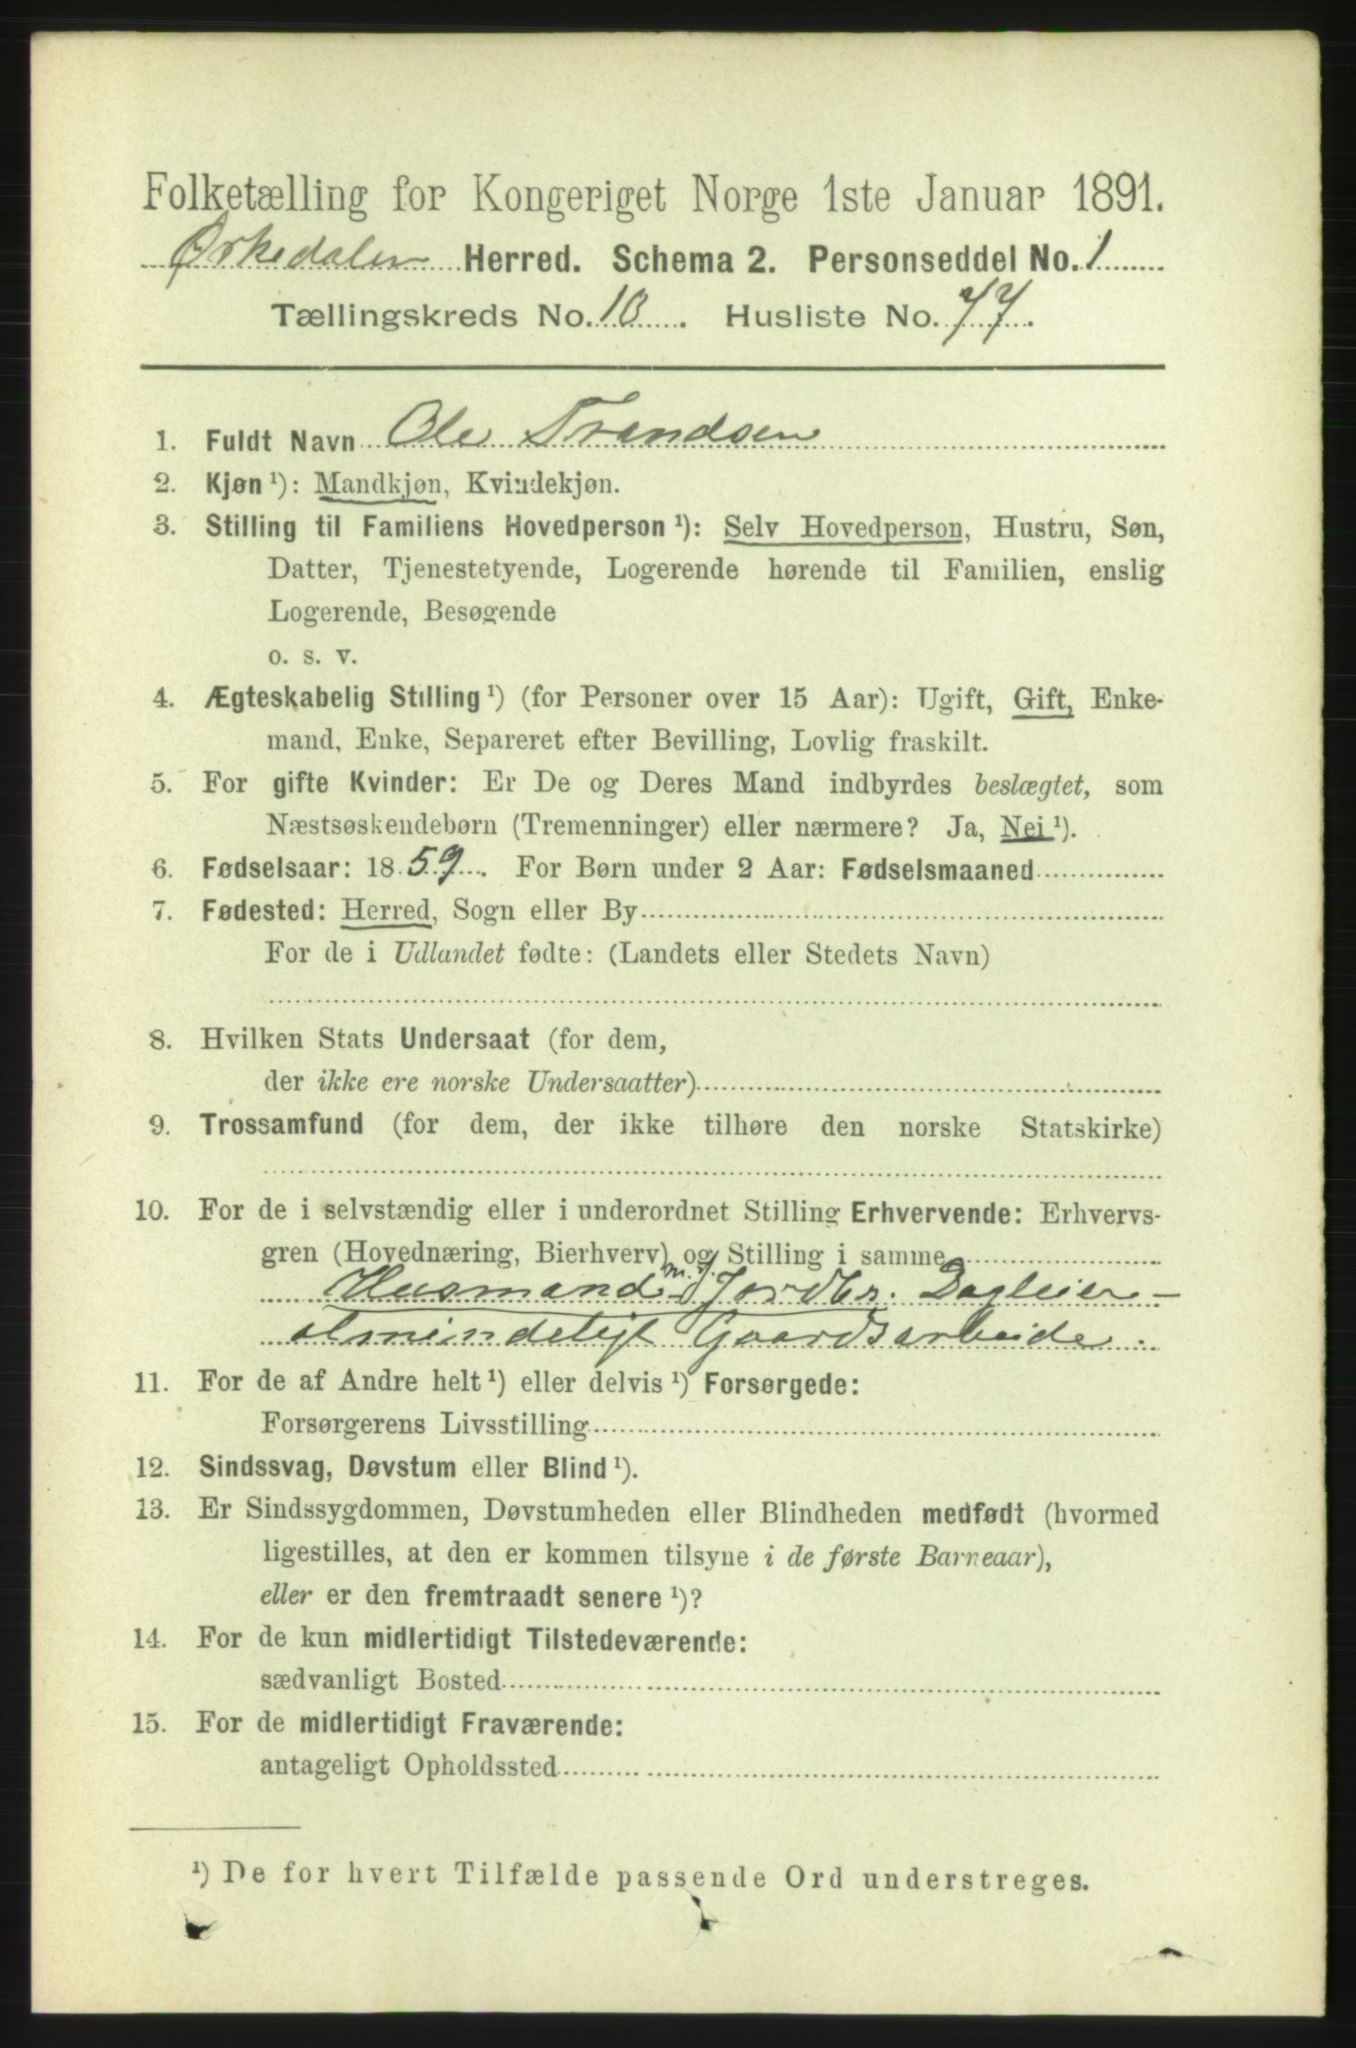 Folketælling for Kongeriget Norge 1ste Januar 1891.
Ørkedalen Herred. Schema 2. Personseddel No. 1
Tællingskreds No. 10. Husliste No. 77.
1. Fuldt Navn Ole Trondsen
2. Kjøn ¹): Mandkjøn, Kvindekjøn.
3. Stilling til Familiens Hovedperson ¹): Selv Hovedperson, Hustru, Søn,
Datter, Tjenestetyende, Logerende hørende til Familien, enslig
Logerende, Besøgende
o. s. v.
4. Ægteskabelig Stilling ¹) (for Personer over 15 Aar): Ugift, Gift, Enke-
mand, Enke, Separeret efter Bevilling, Lovlig fraskilt.
5. For gifte Kvinder: Er De og Deres Mand indbyrdes beslægtet, som
Næstsøskendebørn (Tremenninger) eller nærmere? Ja, Nei ¹).
6. Fødselsaar: 1859. For Børn under 2 Aar: Fødselsmaaned
7. Fødested: Herred, Sogn eller By
For de i Udlandet fødte: (Landets eller Stedets Navn)
8. Hvilken Stats Undersaat (for dem,
der ikke ere norske Undersaatter)
9. Trossamfund (for dem, der ikke tilhøre den norske Statskirke)
10. For de i selvstændig eller i underordnet Stilling Erhvervende: Erhvervs-
gren (Hovednæring, Bierhverv) og Stilling i samme
Husmand m. J. Jordbr. Dagleier -
almindeligt Gaardsarbeide.
11. For de af Andre helt ¹) eller delvis ¹) Forsørgede:
Forsørgerens Livsstilling
12. Sindssvag, Døvstum eller Blind ¹).
13. Er Sindssygdommen, Døvstumheden eller Blindheden medfødt (hvormed
ligestilles, at den er kommen tilsyne i de første Barneaar),
eller er den fremtraadt senere ¹)?
14. For de kun midlertidigt Tilstedeværende:
sædvanligt Bosted
15. For de midlertidigt Fraværende:
antageligt Opholdssted
¹) De for hvert Tilfælde passende Ord understreges.